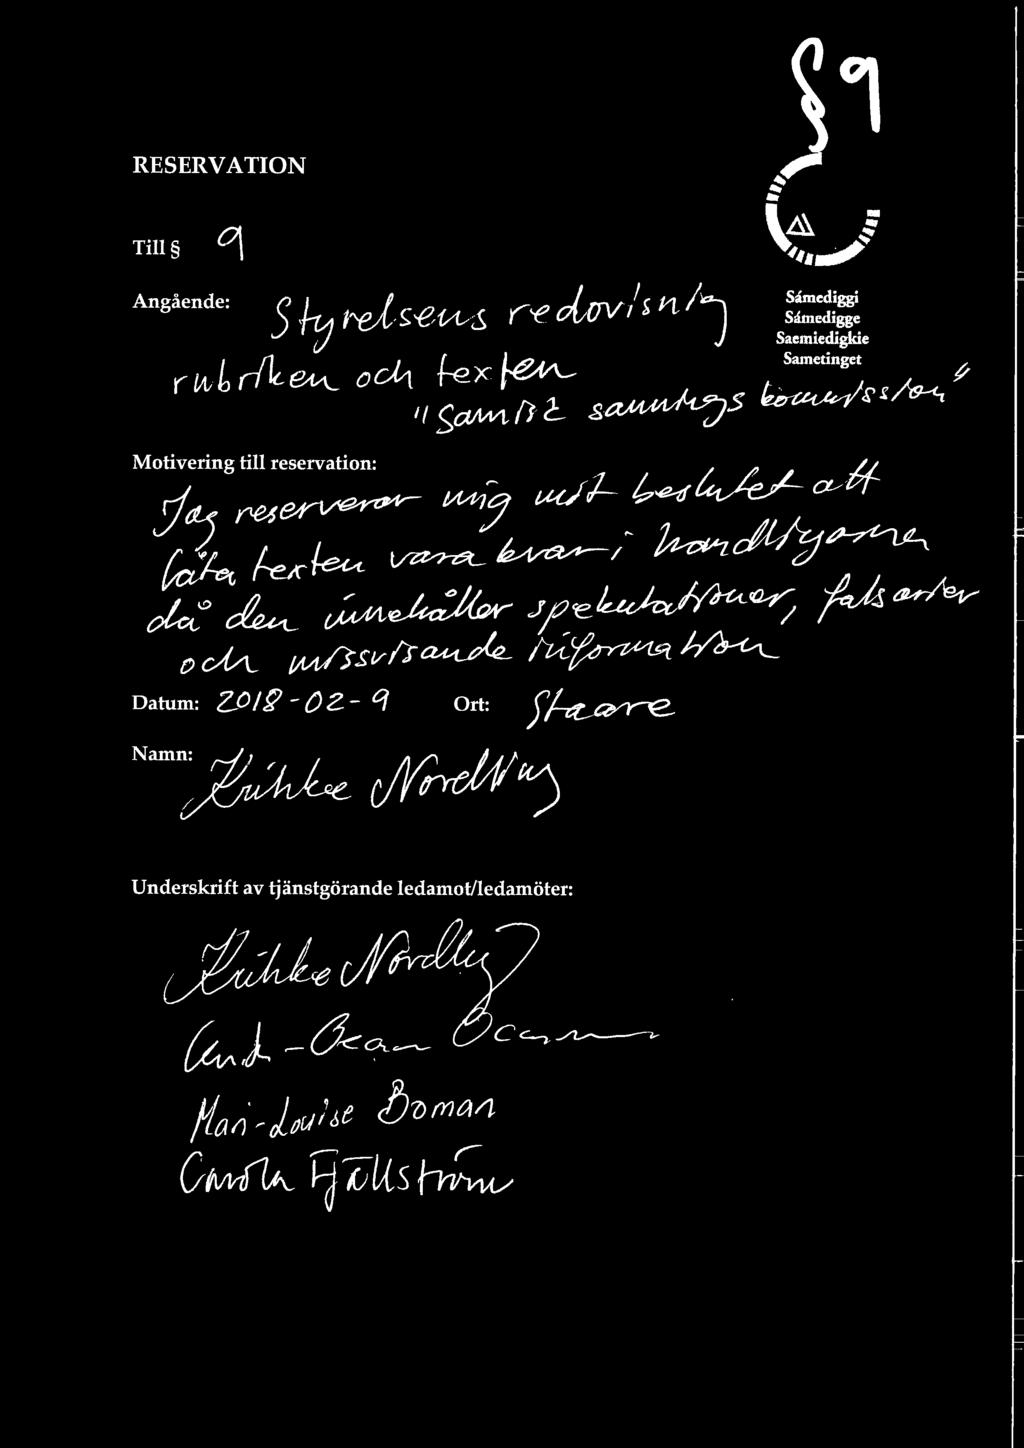 §9
RESERVATION
Till § 9
Angående: Styrelsens redovisning
rubriken och texten
"Samisk sannings kommission"
Sámediggi
Sámedigge
Saemiedigkie
Sametinget
Motivering till reservation:
Jag reserverar mig mot beslutet att
låta texten vara kvar i handlingarna
då den innehåller spekulationer, falsarier
och missvisande information
Datum: 2018-02-9 Ort: Staare
Namn: Nordling
Underskrift av tjänstgörande ledamot/ledamöter:
Mari-Louise Boman
Carola Fjällström